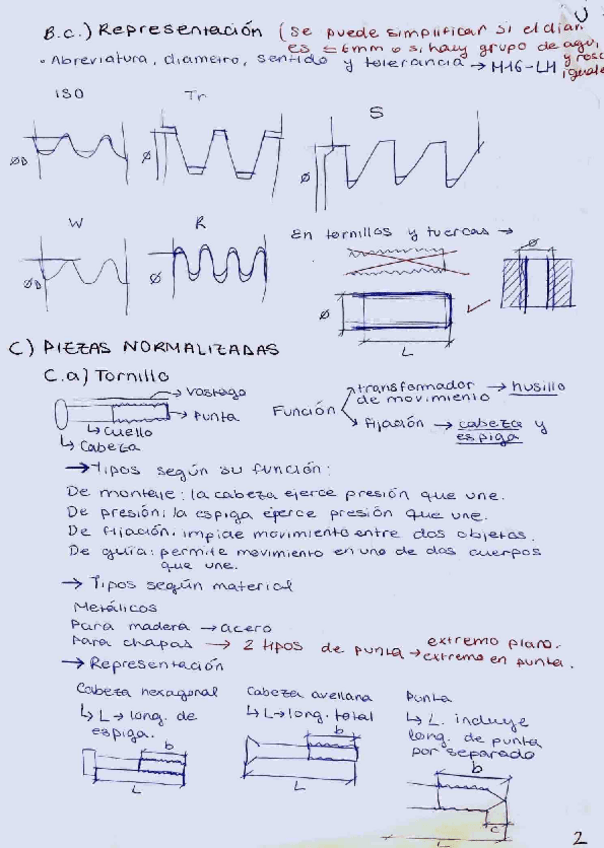 B.c.) Representación (se puede simplificar si el diam.
es ≤ 6mm o si hay grupo de aguj.
y rosc
iguale
• Abreviatura, diametro, sentido y tolerancia → M16-LH
ISO
Tr
S
ØD
Ø
Ø
W
R
ØD
Ø
En tornillos y tuercas →
Ø
Ø
L
C) PIEZAS NORMALIZADAS
C.a) Tornillo
→ vastago
→ Punta
↳ Cuello
↳ Cabeza
Función
transformador
de movimiento → husillo
Fijación → cabeza y
espiga
→ Tipos según su función:
De montaje: la cabeza ejerce presión que une.
De presión: la espiga ejerce presión que une.
De fijación: impide movimiento entre dos objetos.
De guía: permite movimiento en uno de dos cuerpos
que une.
→ Tipos según material
Metálicos
Para madera → acero
Para chapas → 2 tipos de punta → extremo plano.
extremo en punta.
→ Representación
Cabeza hexagonal
↳ L → long. de
espiga.
b
L
Cabeza avellana
↳ L → long. total
b
L
Punta
↳ L. incluye
long. de punta
por separado
b
c
L
2